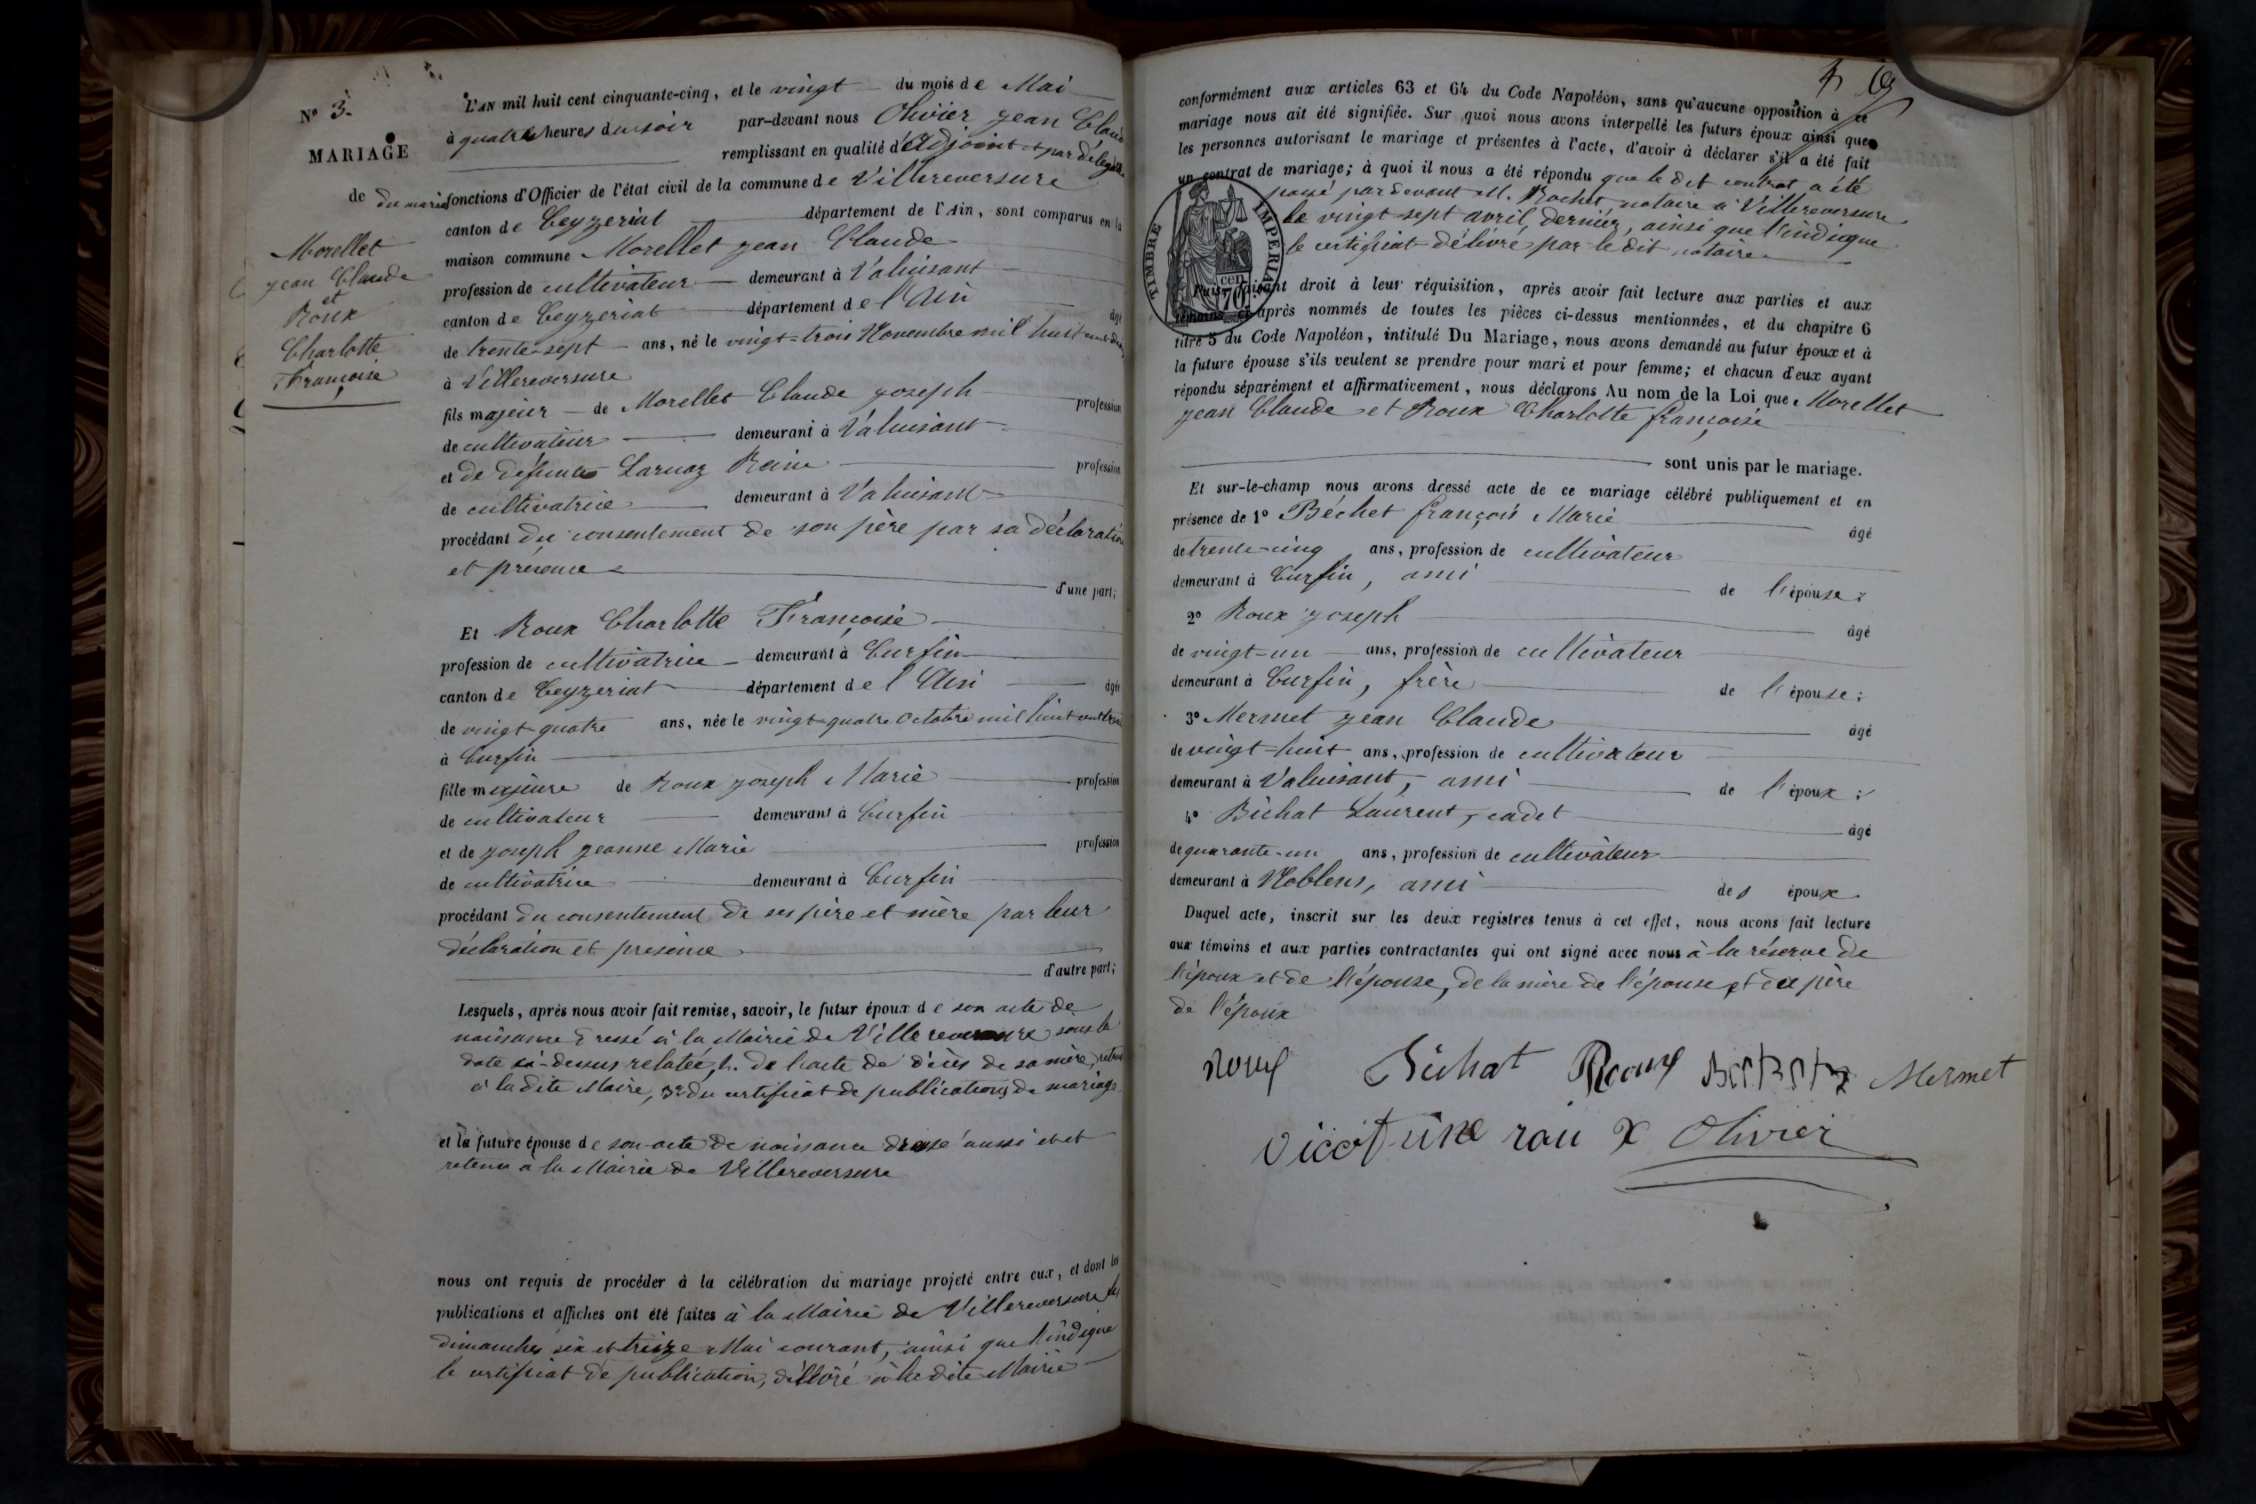 N° 3.
MARIAGE
de
Morellet
jean Claude
et
Roux
Charlotte
Françoise
L'AN mil huit cent cinquante-cinq, et le vingt du mois de Mai
à quatre heures du soir par-devant nous Olivier jean Claude
remplissant en qualité d'Adjoint et par délégation
du maire fonctions d'Officier de l'état civil de la commune de Villereversure
canton de Ceyzeriat département de l'Ain, sont comparus en la
maison commune Morellet jean Claude
profession de cultivateur demeurant à Valuisant
canton de Ceyzeriat département de l'Ain âgé
de trente-sept ans, né le vingt-trois Novembre mil huit cent
à Villereversure
fils majeur de Morellet Claude joseph profession
de cultivateur demeurant à Valuisant
et de défunte Laruaz Reine profession
de cultivatrice demeurant à Valuisant
procédant du consentement de son père par sa déclaration
et présence
d'une part;
Et Roux Charlotte Françoise
profession de cultivatrice demeurant à Curfin
canton de Ceyzeriat département de l'Ain âgée
de vingt-quatre ans, née le vingt-quatre Octobre mil huit cent trente
à Curfin
fille majeure de Roux joseph Marie profession
de cultivateur demeurant à Curfin
et de joseph jeanne Marie profession
de cultivatrice demeurant à Curfin
procédant du consentement de ses père et mère par leur
déclaration et présence
d'autre part;
Lesquels, après nous avoir fait remise, savoir, le futur époux de son acte de
naissance dressé à la Mairie de Villereversure sous la
date ci-dessus relatée, 2. de l'acte de décès de sa mère, retenu
à la dite Mairie, 3° du certificat de publications de mariage
et la future épouse de son acte de naissance dressé aussi et
retenu à la Mairie de Villereversure
nous ont requis de procéder à la célébration du mariage projeté entre eux, et dont les
publications et affiches ont été faites à la Mairie de Villereversure les
dimanches six et treize Mai courant, ainsi que l'indique
le certificat de publication, délivré à la dite Mairie
conformément aux articles 63 et 64 du Code Napoléon, sans qu'aucune opposition à ce
mariage nous ait été signifiée. Sur quoi nous avons interpellé les futurs époux ainsi que
les personnes autorisant le mariage et présentes à l'acte, d'avoir à déclarer s'il a été fait
un contrat de mariage; à quoi il nous a été répondu que le dit contrat a été
passé par devant M. Rochet notaire à Villereversure
le vingt-sept avril dernier, ainsi que l'indique
le certificat délivré par le dit notaire
TIMBRE IMPERIAL
70 cen
Puis, faisant droit à leur réquisition, après avoir fait lecture aux parties et aux
témoins ci-après nommés de toutes les pièces ci-dessus mentionnées, et du chapitre 6
titre 5 du Code Napoléon, intitulé Du Mariage, nous avons demandé au futur époux et à
la future épouse s'ils veulent se prendre pour mari et pour femme; et chacun d'eux ayant
répondu séparément et affirmativement, nous déclarons Au nom de la Loi que Morellet
jean Claude et Roux Charlotte françoise
sont unis par le mariage.
Et sur-le-champ nous avons dressé acte de ce mariage célébré publiquement et en
présence de 1° Béchet françois Marie âgé
de trente-cinq ans, profession de cultivateur
demeurant à Curfin, ami de l'épouse;
2° Roux joseph âgé
de vingt-un ans, profession de cultivateur
demeurant à Curfin, frère de l'épouse;
3° Mermet jean Claude âgé
de vingt-huit ans, profession de cultivateur
demeurant à Valuisant, ami de l'époux;
4° Bichat Laurent, cadet âgé
de quarante-un ans, profession de cultivateur
demeurant à Noblens, ami des époux
Duquel acte, inscrit sur les deux registres tenus à cet effet, nous avons fait lecture
aux témoins et aux parties contractantes qui ont signé avec nous à la réserve de
l'époux et de l'épouse, de la mère de l'épouse et du père
de l'époux
Roux Bichat Roux Mermet
rou x Olivier